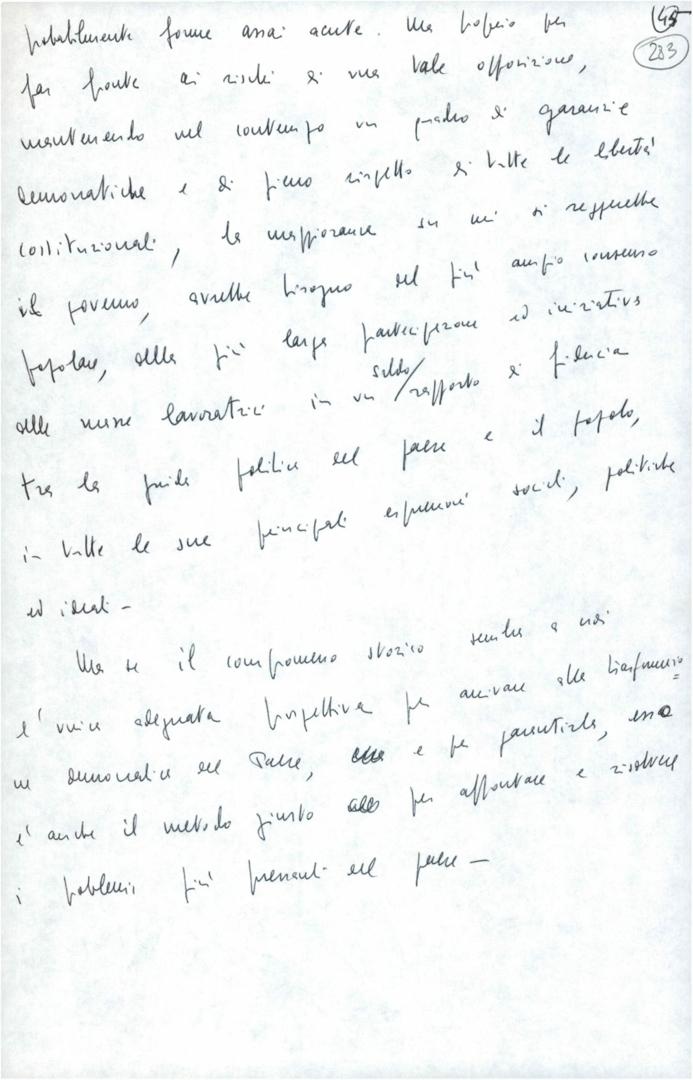 45
203
probabilmente forme assai acute. Ma proprio per
far fronte ai rischi di una tale opposizione,
mantenendo nel contempo un quadro di garanzie
democratiche e di pieno rispetto di tutte le libertà
costituzionali, la maggioranza su cui si reggerebbe
il governo, avrebbe bisogno del più ampio consenso
popolare, della più larga partecipazione ed iniziativa
delle masse lavoratrici in un saldo/rapporto di fiducia
tra la guida politica del paese e il popolo,
in tutte le sue principali espressioni sociali, politiche
ed ideali -
Ma se il compromesso storico sembra a noi
l'unica adeguata prospettiva per arrivare alla trasformazio=
ne democratica del Paese, e per garantirla, esso
è anche il metodo giusto per affrontare e risolvere
i problemi più pressanti del paese -